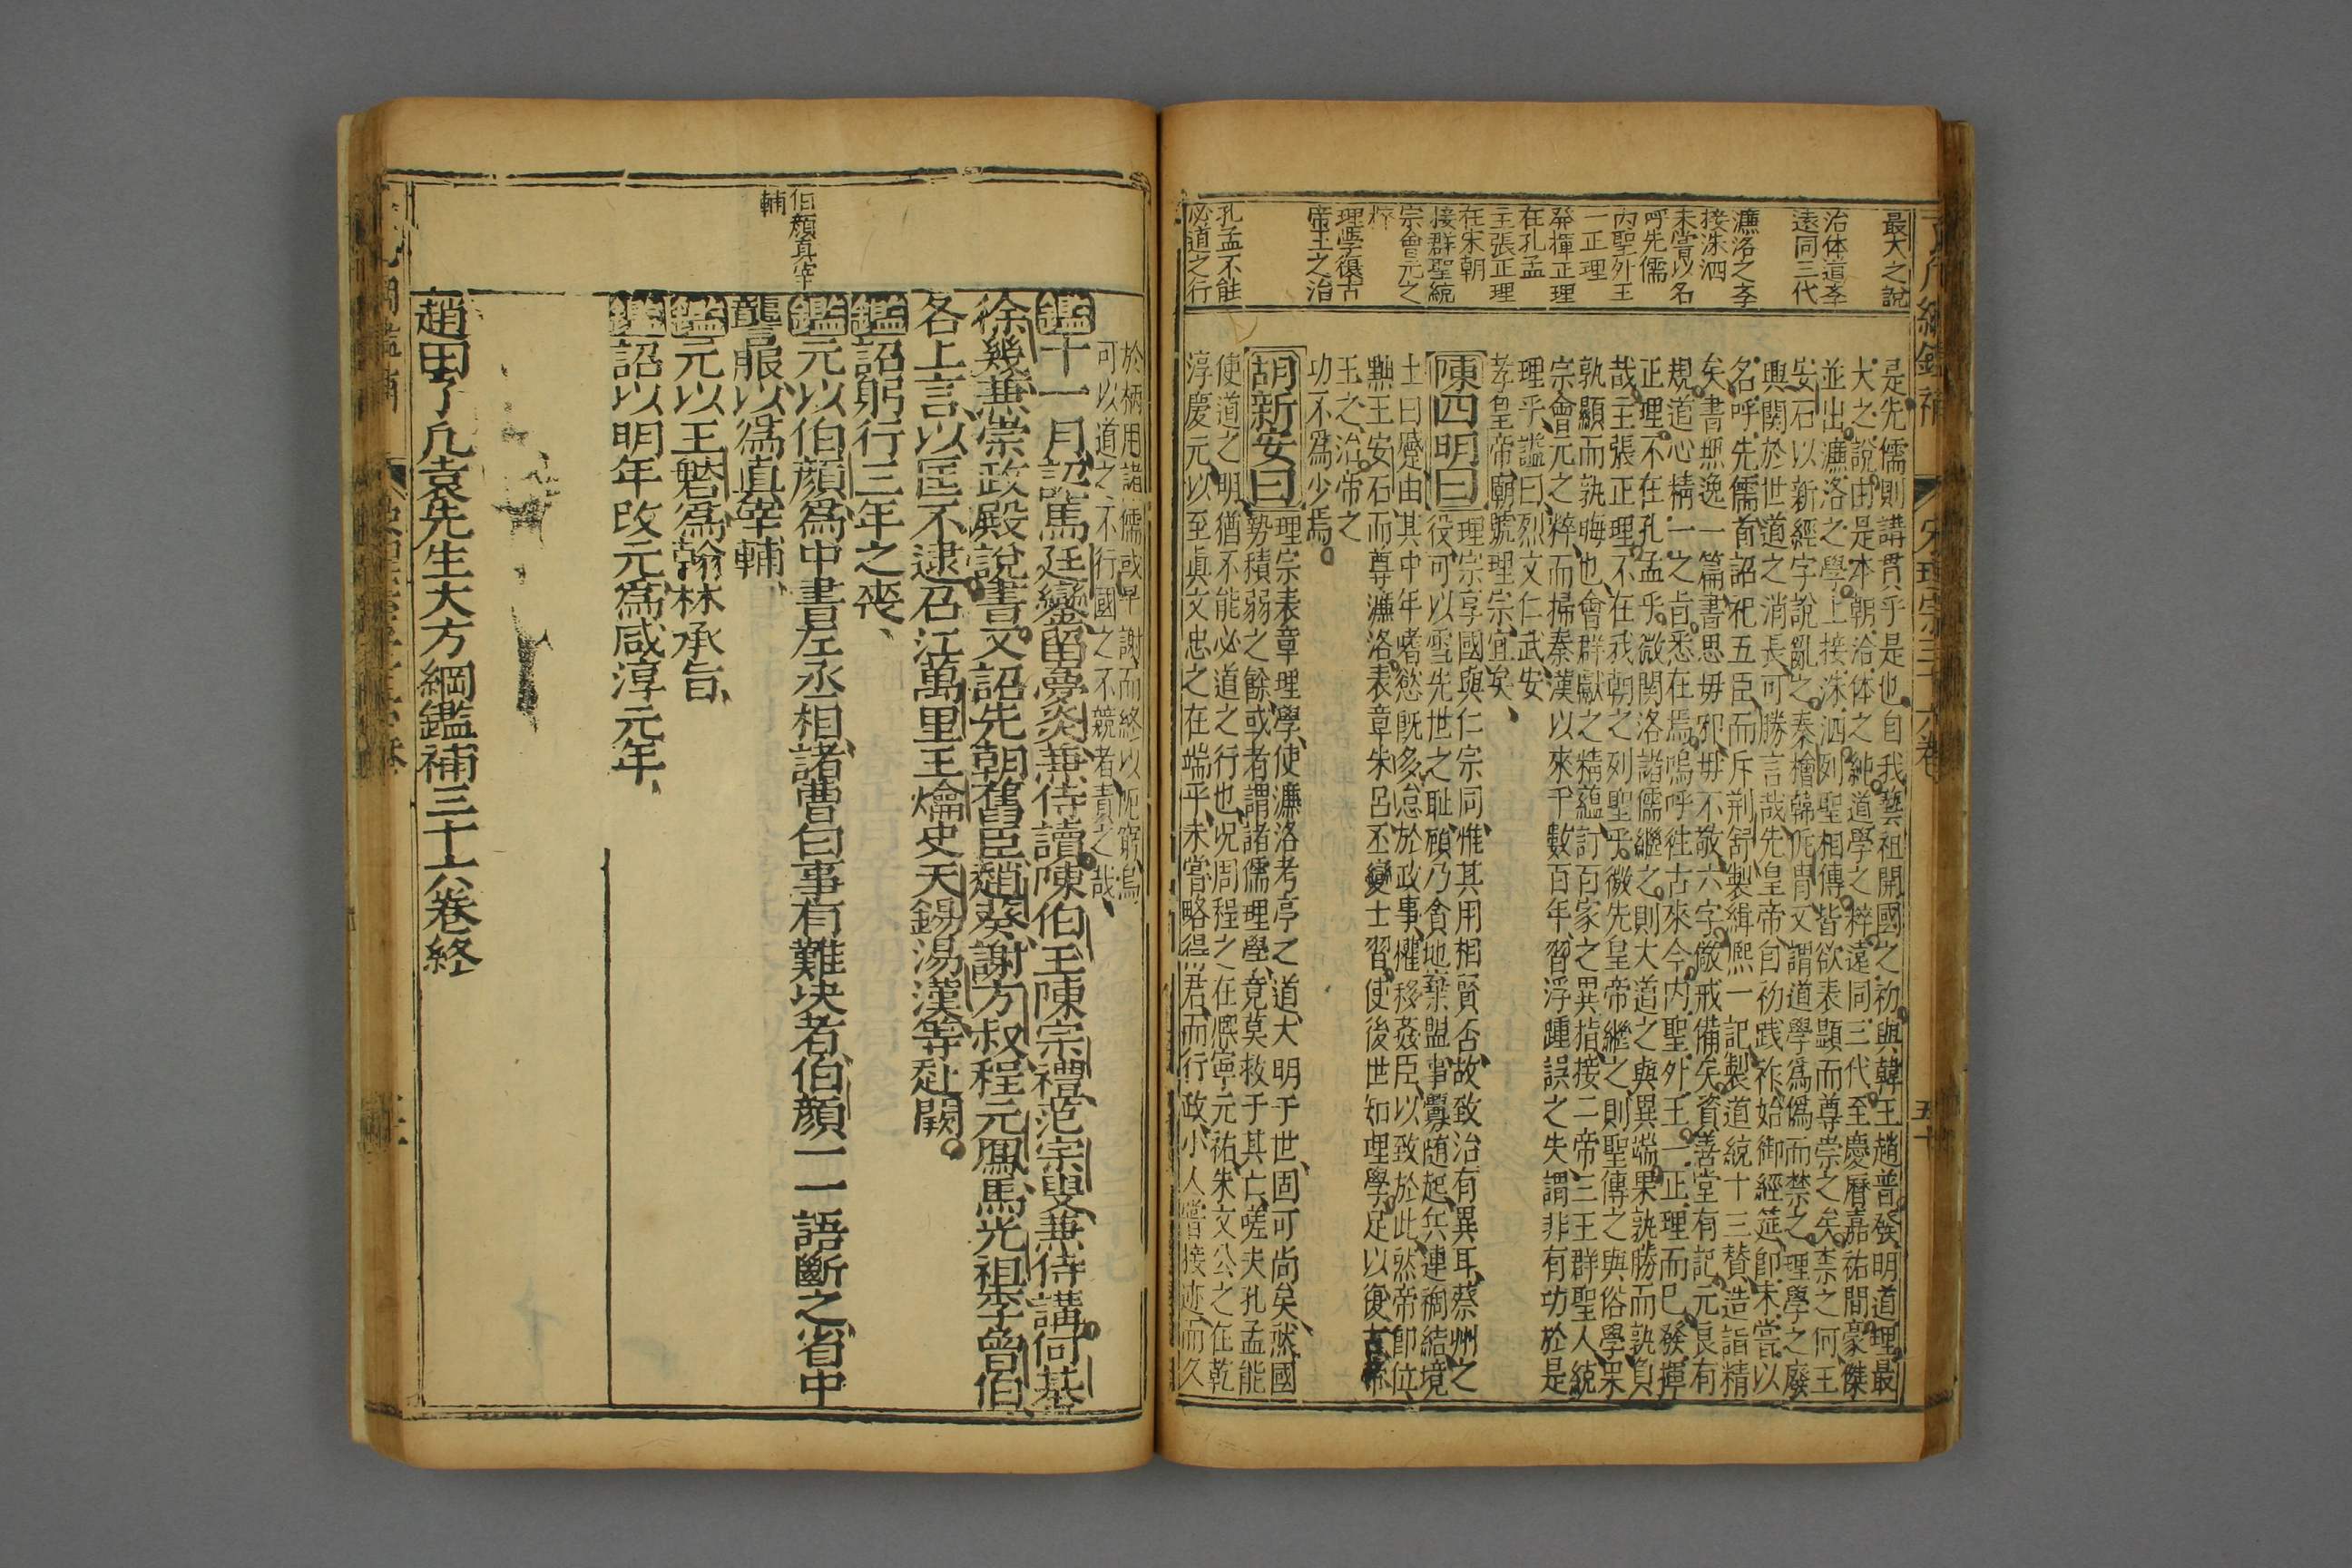 最大之說
治体道孝
遠同三代
濂洛之孝
接洙泗
未嘗以名
呼先儒
內聖外王
一正理
發揮正理
在孔孟
主張正理
在宋朝
接群聖統
宗會元之
粹
理學復古
帝王之治
孔孟不能
必道之行
是先儒則講貫乎是也自我藝祖開國之初與韓王趙普發明道理最
大之說由是本朝治体之純道學之粹遠同三代至慶曆嘉祐間豪傑
並出濂洛之學上接洙泗列聖相傳皆欲表顯而尊崇之矣柰之何王
安石以新經字說亂之秦檜韓侂胄又謂道學爲僞而禁之理學之廢
興関於世道之消長可勝言哉先皇帝自初踐祚始御經筵卽未嘗以
名呼先儒首詔祀五臣而斥荆舒製緝熙一記製道統十三贊造詣精
矣書無逸一篇書思毋邪毋不敬六字儆戒備矣資善堂有記元良有
規道心精一之㫖悉在焉嗚呼徃古來今內聖外王一正理而已發揮
正理不在孔孟乎微関洛諸儒繼之則大道之與異端果孰勝而孰負
哉主張正理不在我朝之列聖乎微先皇帝繼之則聖傳之與俗學果
孰顯而孰晦也會群獻之精蘊訂百家之異指接二帝三王群聖人統
宗會元之粹而掃秦漢以來千數百年習浮踵誤之失謂非有功於是
理乎謚曰烈文仁武安
孝皇帝廟號理宗宜矣
陳四明曰理宗享國與仁宗同惟其用相賢否故致治有異耳蔡州之
役可以雪先世之耻顧乃貪地棄盟事釁随起兵連禍結境
土曰蹙由其中年嗜慾旣多怠於政事權移姦臣以致於此然帝卽位
黜王安石而尊濂洛表章朱呂丕變士習使後世知理學足以復古帝
王之治帝之
功不爲少焉
胡新安曰理宗表章理學使濂洛考亭之道大明于世固可尚矣然國
勢積弱之餘或者謂諸儒理學竟莫救于其亡嗟夫孔孟能
使道之明猶不能必道之行也況周程之在熈寧元祐朱文公之在乾
淳慶元以至真文忠之在端平未嘗略得君而行政小人嘗接迹而久
於柄用諸儒或早謝而終以阨窮烏
可以道之不行國之不競者責之哉
伯顏真宰
輔
鑑十一月詔馬廷鸞留夢炎兼侍讀陳伯王陳宗禮范宗叟兼侍講何基
徐幾兼崇政殿說書又詔先朝舊臣趙葵謝方叔程元鳳馬光祖李曾伯
各上言以匡不逮召江萬里王爚史天錫湯漢等赴闕
鑑詔躬行三年之喪
鑑元以伯顏爲中書左丞相諸曹白事有難决者伯顏一二語斷之省中
讋服以爲真宰輔
鑑元以王磐爲翰林承旨
鑑詔以明年改元爲咸淳元年
趙田了凡袁先生大方綱鑑補三十六卷終